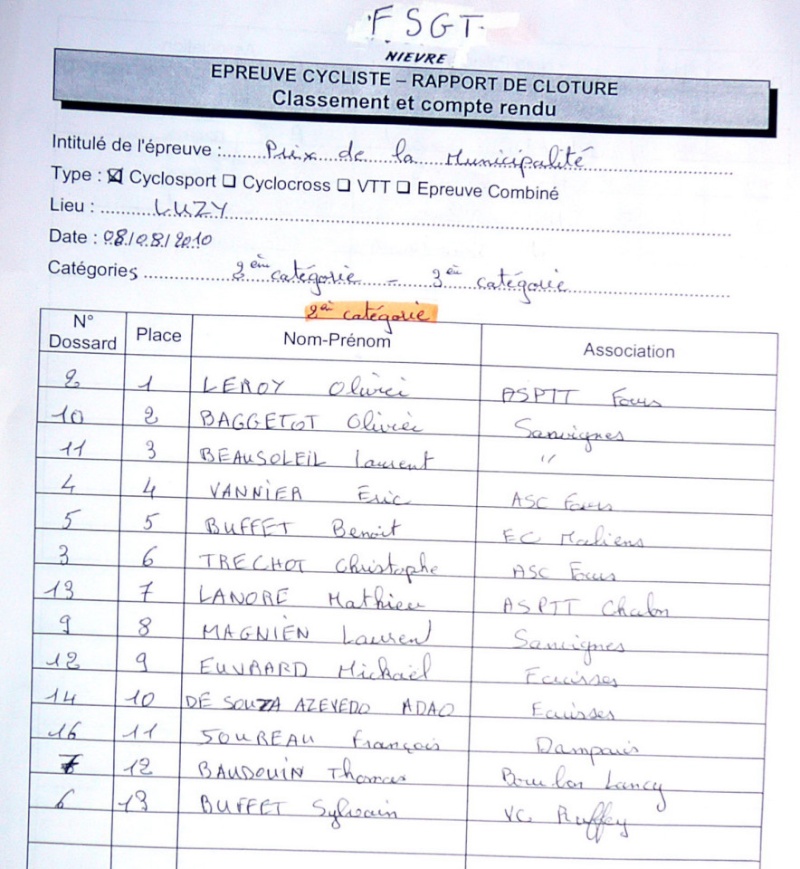 FSGT
NIEVRE
EPREUVE CYCLISTE – RAPPORT DE CLOTURE
Classement et compte rendu
Intitulé de l'épreuve : Prix de la Municipalité
Type : ☒ Cyclosport ❑ Cyclocross ❑ VTT ❑ Epreuve Combiné
Lieu : LUZY
Date : 08/08/2010
Catégories 2ème catégorie - 3ème catégorie
2è catégorie
N° Dossard Place Nom-Prénom Association
2 1 LEROY Olivier ASPTT
10 2 BAGGETOT Olivier Sanvignes
11 3 BEAUSOLEIL Laurent "
4 4 VANNIER Eric ASC
5 5 BUFFET Benoit EC
3 6 TRECHOT Christophe ASC
13 7 LANORE Mathieu ASPTT Chalon
9 8 MAGNIEN Laurent Sanvignes
12 9 EUVRARD Mickaël Ecuisses
14 10 DE SOUZA AZEVEDO ADAO Ecuisses
16 11 SOUREAU François Damparis
7 12 BAUDOUIN Thomas Bourbon Lancy
6 13 BUFFET Sylvain VC Ruffey